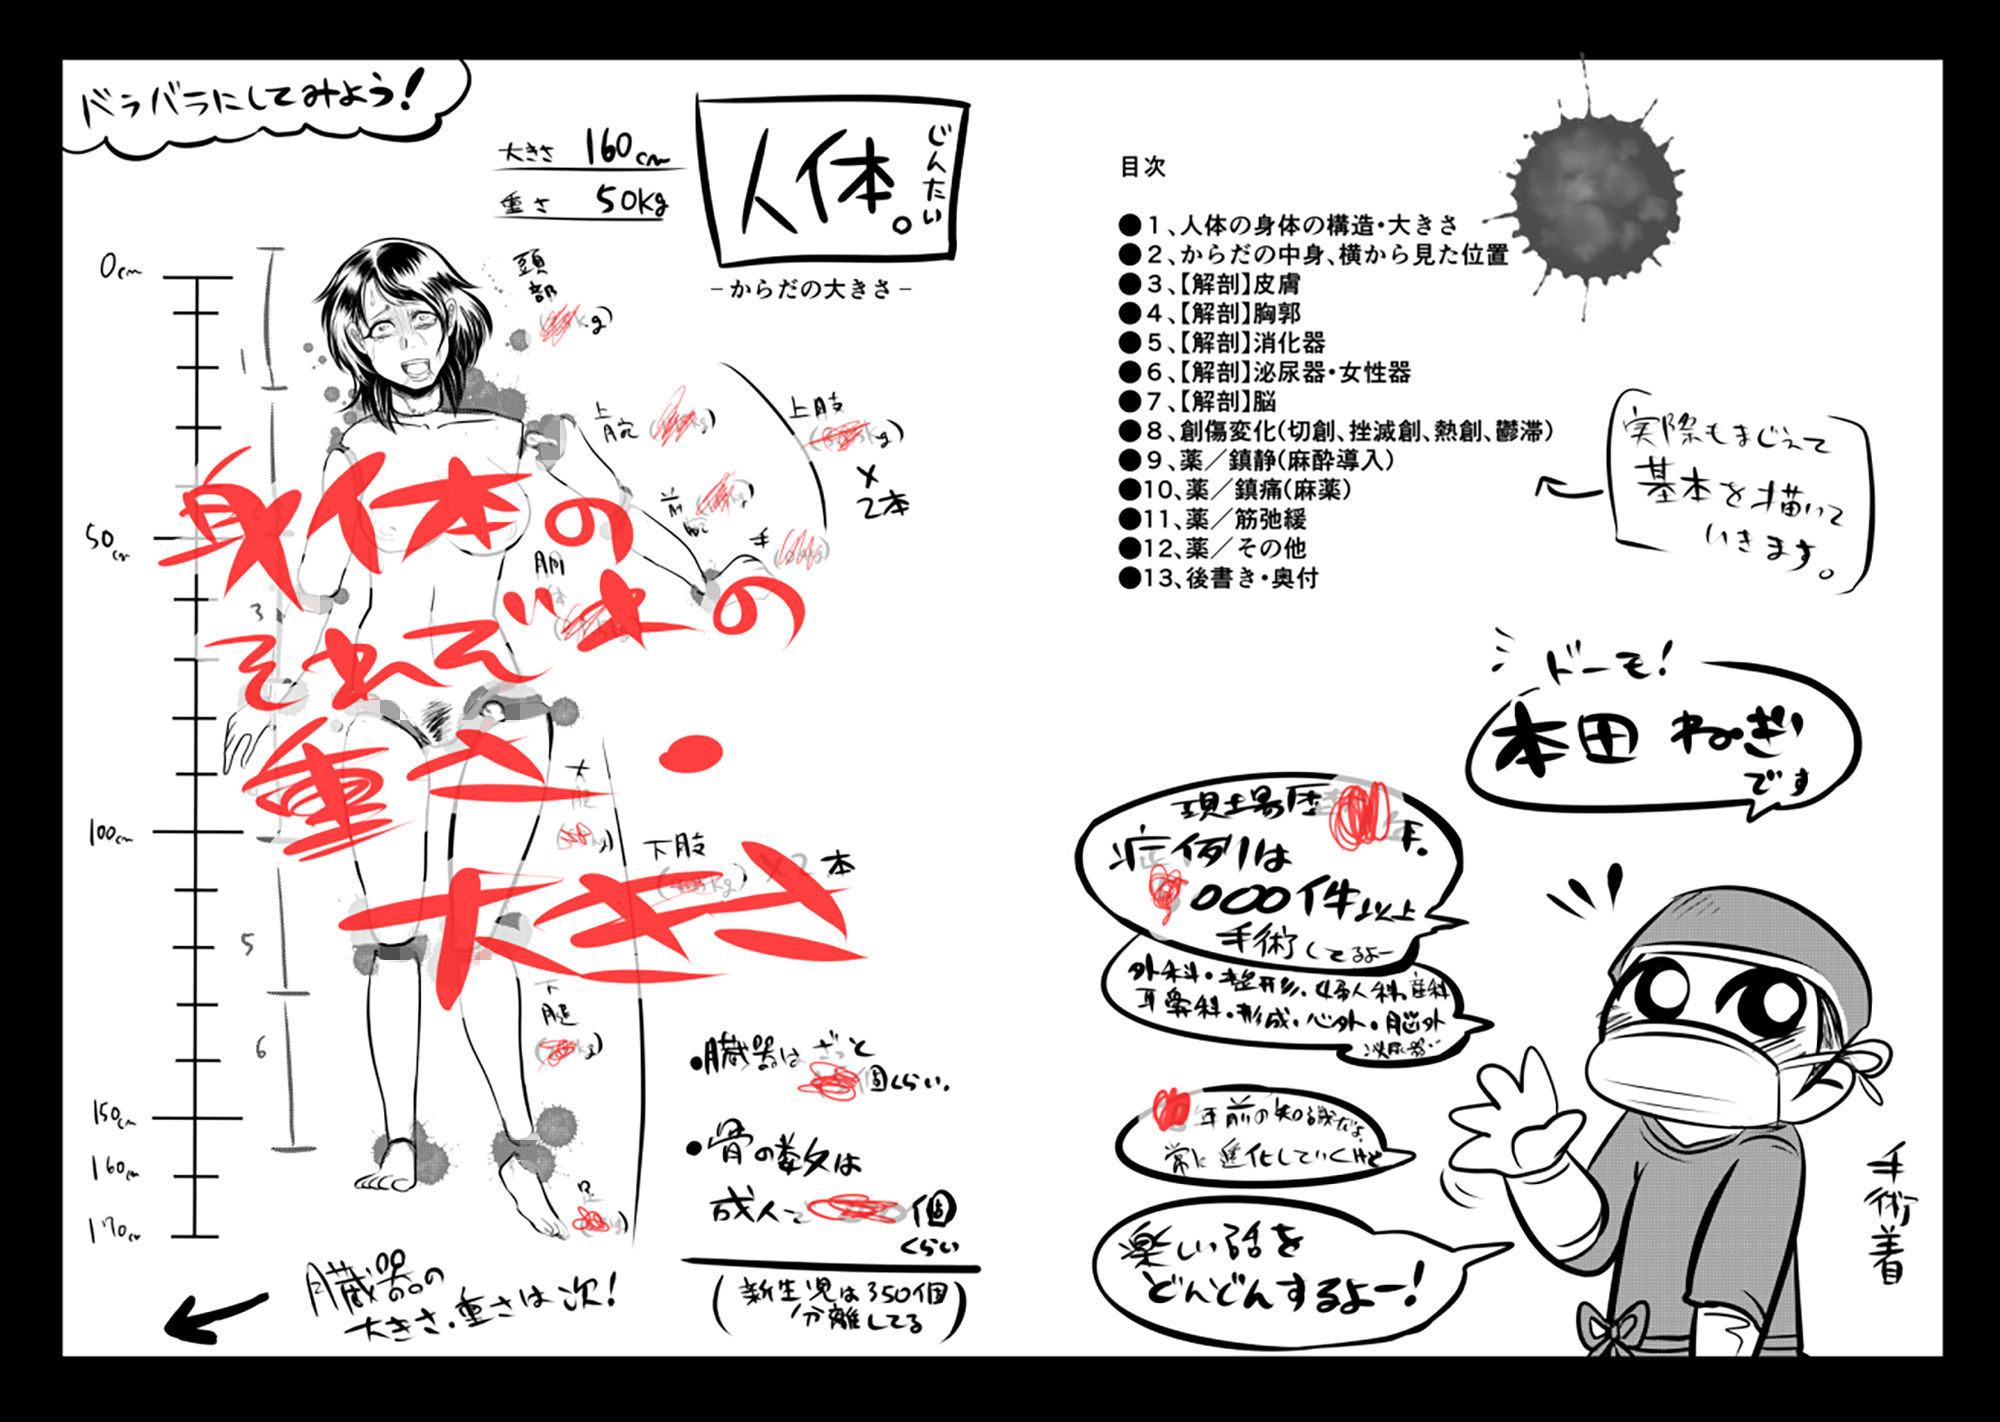 バラバラにしてみよう!
大きさ 160cm
重さ 50Kg
人体。
じんたい
−からだの大きさ−
0cm
50cm
100cm
150cm
160cm
170cm
1
3
5
6
頭部
上腕
前腕
手
上肢
×
2本
胴体
大腿
下肢
×2本
下腿
足
身体の
それぞれの
重さ・
大きさ
●臓器はざっと
個くらい.
●骨の数は
成人で 個
くらい
(新生児は350個
分離してる)
臓器の
大きさ.重さは次!
目次
●1、人体の身体の構造・大きさ
●2、からだの中身、横から見た位置
●3、【解剖】皮膚
●4、【解剖】胸郭
●5、【解剖】消化器
●6、【解剖】泌尿器・女性器
●7、【解剖】脳
●8、創傷変化(切創、挫滅創、熱創、鬱滞)
●9、薬/鎮静(麻酔導入)
●10、薬/鎮痛(麻薬)
●11、薬/筋弛緩
●12、薬/その他
●13、後書き・奥付
実際もまじえて
基本を描いて
いきます。
ドーモ!
本田 ねぎ
です
現場歴 年.
症例は
000件以上
手術してるよー
外科・整形・婦人科・産科
耳鼻科・形成・心外・脳外
泌尿器…
年前の知識だよ.
常に進化していくけど
楽しい話を
どんどんするよー!
手術着